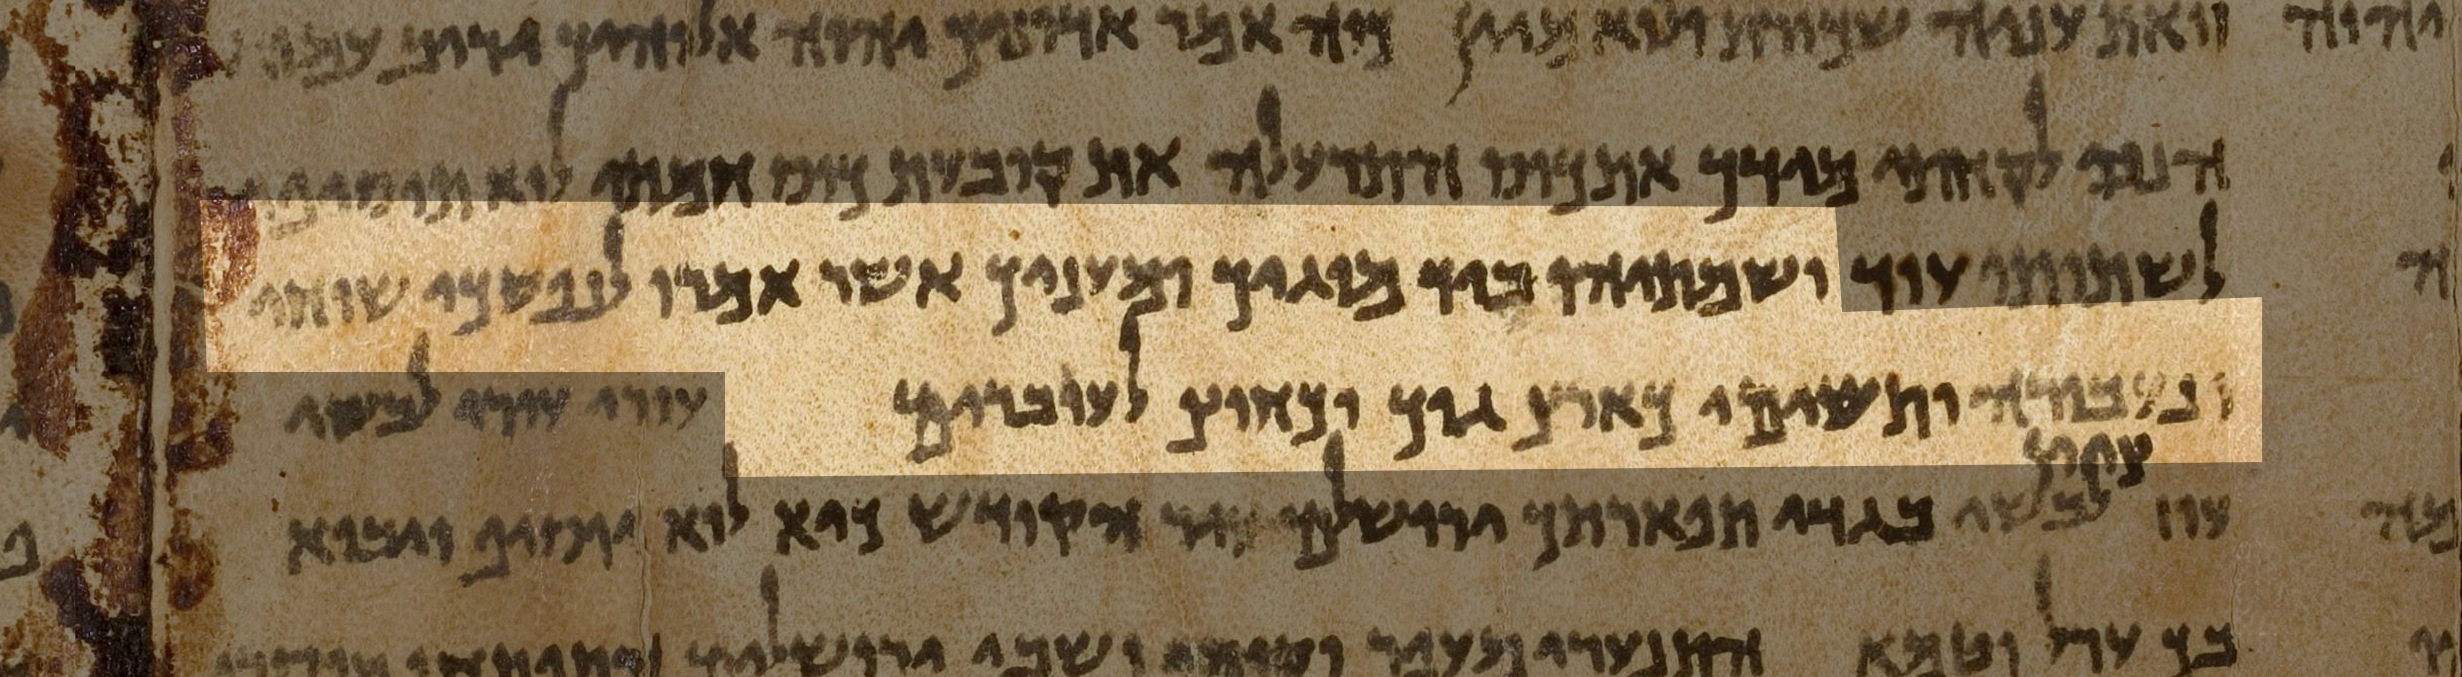 עניה שכורת ולוא מיין כוה אמר אדוניך יהוה אלוהיך יריב עמו
הנה לקחתי מידך את כוס התרעלה את קובעת כוס חמתי לוא תוסיפי
לשתותו עוד ושמתיהו ביד מוגיך ומעניך אשר אמרו לנפשכי שוחי
ונעבורה ותשימי כארץ גוך וכחוץ לעוברים עורי עורי לבשי
ציון
עוז לבשי בגדי תפארתך ירושלים עיר הקודש כיא לוא יוסיף ויבוא
בך ערל וטמא התנערי מעפר וקומי ושבי ירושלים